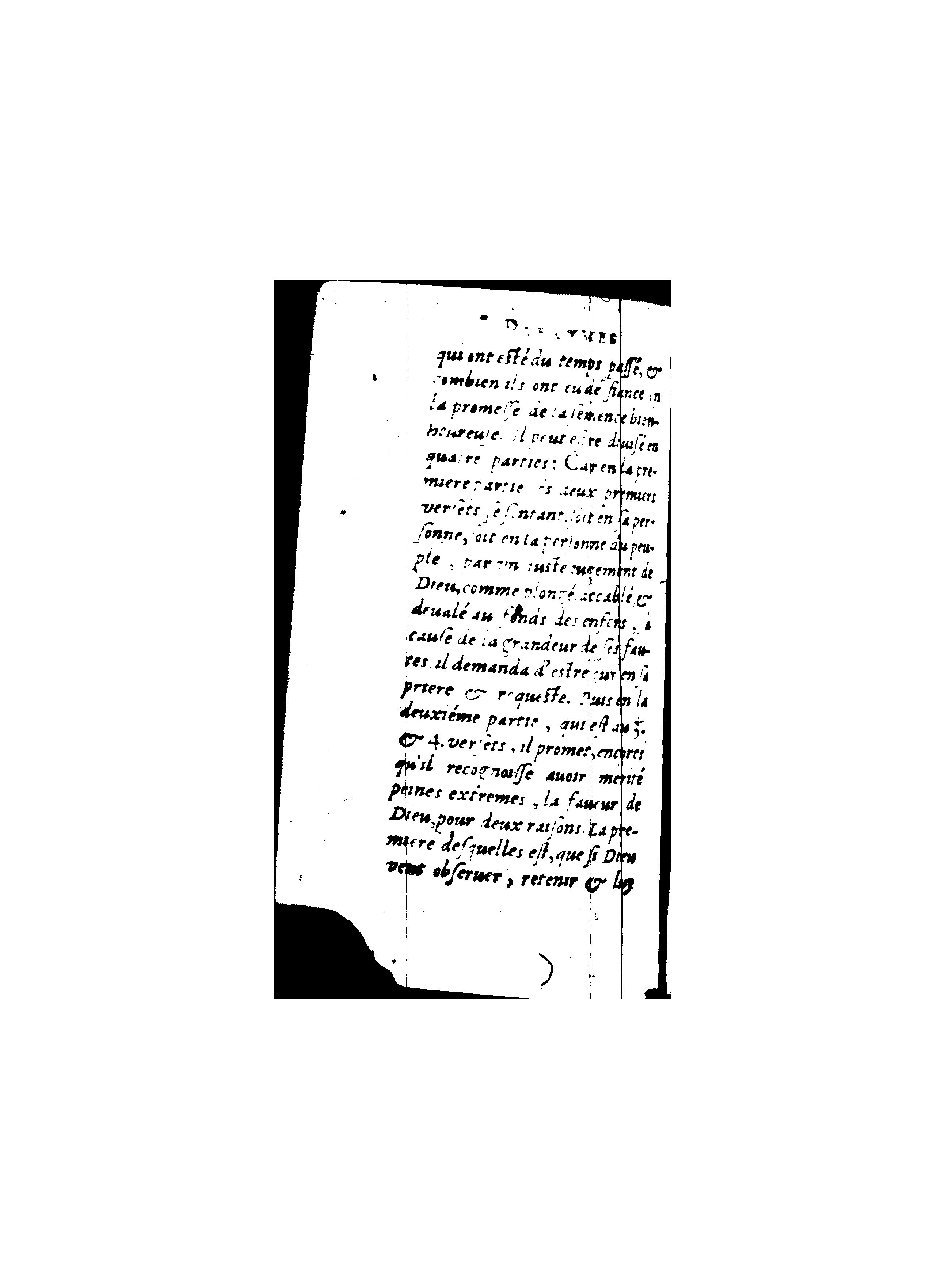 qui ont esté du temps passé, &
combien ils ont eu de fiance en
la promesse de la semence bien-
heureuse. Il peut estre diuisé en
quatre parties: Car en la pre-
miere partie és deux premiers
versèts se sentant, soit en sa per-
sonne, soit en la personne du peu-
ple, par vn iuste iugement de
Dieu, comme plongé, accablé &
deualé au fonds des enfers, à
cause de la grandeur de ses fau-
tes, il demanda d'estre ouy en sa
priere & requeste. Puis en la
deuxiéme partie, qui est au 3.
& 4. versèts, il promet, encores
qu'il recognoisse auoir merité
peines extremes, la faueur de
Dieu, pour deux raisons. La pre-
miere desquelles est, que si Dieu
veut obseruer, retenir &